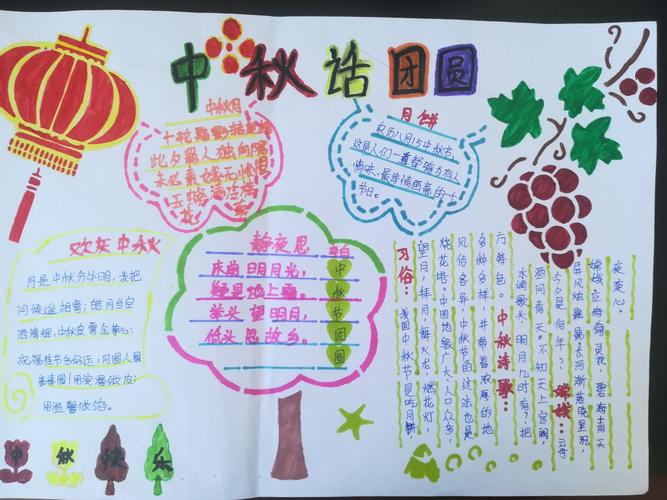 中秋话团圆
中秋月
此夕羁人独向隅
未必素娥无
月饼
农历八月15中秋节,
节日。
欢庆中秋
月是中秋分外明,我把
问候遥相寄;皓月当空
洒清辉,中秋良宵念挚心;
祝福佳节多好运,月圆人圆
事事圆!用浪漫做皮;
用温馨做馅。
静夜思
李白
床前明月光,
疑是地上霜。
举头望明月,
低头思故乡。
中
秋
节
团
圆
习俗:
我国中秋节是吃月饼
望月,拜月,舞火龙,燃花灯,
烧花塔。中国地域广大人口众多,
风俗各异,中秋节的过法也是
多种多样,并带着浓厚的地
方特色。
中秋诗歌:
水调歌头:明月几时有?把
酒问青天。不知天上宫阙,
今夕是何年?
嫦娥:
云母
屏风烛影深,长河渐落晓星沉,
嫦娥应悔偷灵药,碧海青天
夜夜心。
中秋快乐